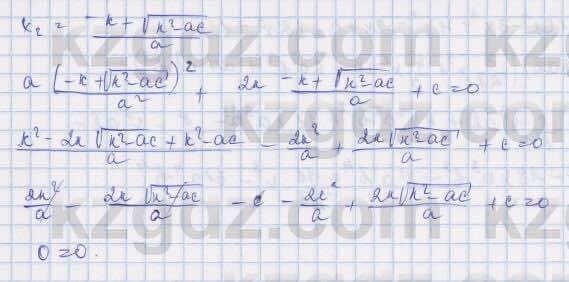 x₂ = (-k + √(k²-ac))/a
a (-k + √(k²-ac))²/a² + 2k (-k + √(k²-ac))/a + c = 0
(k² - 2k √(k²-ac) + k² - ac)/a - 2k²/a + 2k√(k²-ac)/a + c = 0
2k²/a - 2k √(k²-ac)/a - c - 2k²/a + 2k√(k²-ac)/a + c = 0
0 = 0.
kzgdz.com